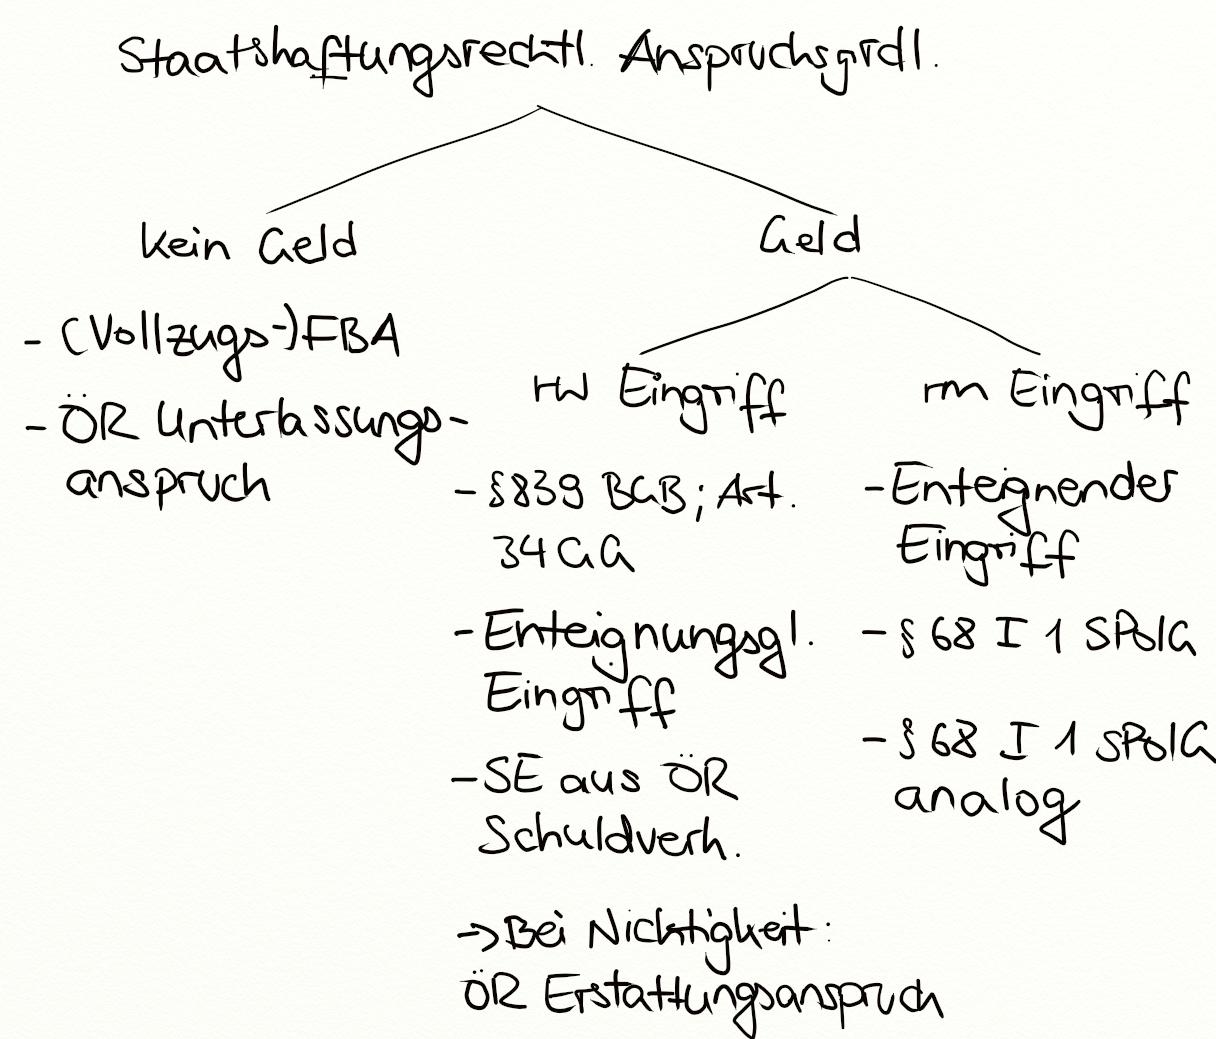 Staatshaftungsrechtl. Anspruchsgrdl.
kein Geld
- (Vollzugs-)FBA
- ÖR Unterlassungs-
anspruch
Geld
rw Eingriff
- § 839 BGB; Art.
34 GG
- Enteignungsgl.
Eingriff
- SE aus ÖR
Schuldverh.
→ Bei Nichtigkeit:
ÖR Erstattungsanspruch
rm Eingriff
- Enteignender
Eingriff
- § 68 I 1 SPolG
- § 68 I 1 SPolG
analog